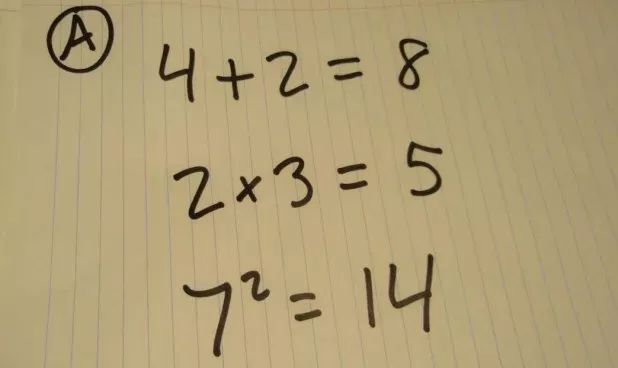 A
4 + 2 = 8
2 × 3 = 5
7² = 14